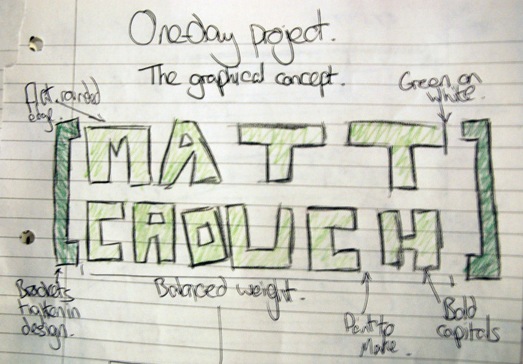 One-day project.
The graphical concept.
Flat, rounded
edge.
Green on
White.
[MATT]
CROUCH
Balanced weight.
Brackets
tighten in
design.
to
Make.
Bold
capitals